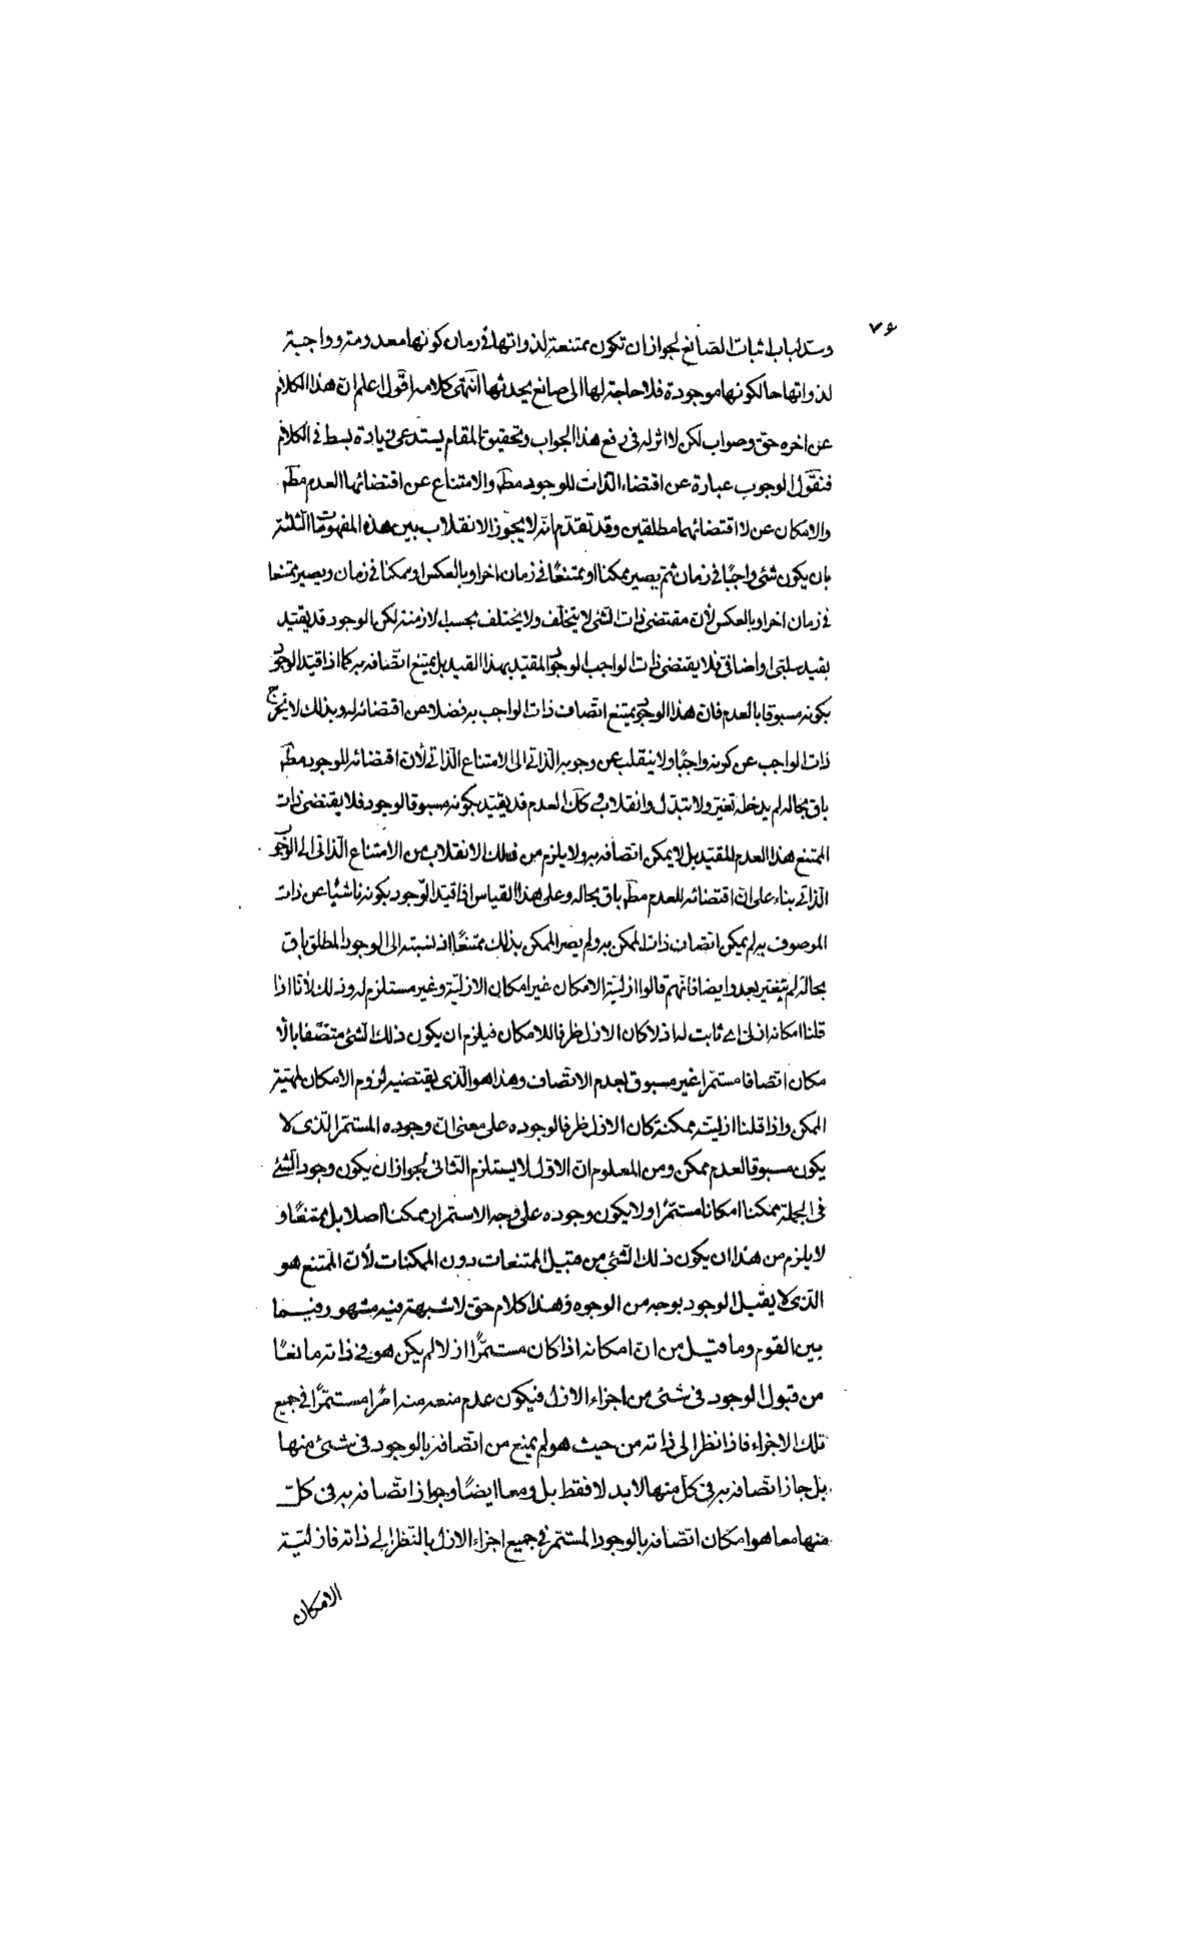 ٧٤
وسد لباب اثبات الصانع لجواز ان تكون ممتنعة لذواتها فى زمان كونها معدومة وواجبة
لذواتها حال كونها موجودة فلا حاجة لها الى صانع يحدثها انتهى كلامه اقول اعلم ان هذا الكلام
عن اخره حق وصواب لكن لا اثر له فى رفع هذا الجواب وتحقيق المقام يستدعى زيادة بسط فى الكلام
فنقول الوجوب عبارة عن اقتضاء الذات للوجود مطلـ والامتناع عن اقتضائها العدم مطلـ
والامكان عن لا اقتضائهما مطلقين وقد تقدم انه لا يجوز الانقلاب بين هذه المفهومات الثلثة
بان يكون شئ واجبًا فى زمان ثم يصير ممكنا او ممتنعًا فى زمان اخر او بالعكس او ممكنا فى زمان ويصير ممتنعا
فى زمان اخر او بالعكس لأن مقتضى ذات الشئ لا يتخلف ولا يختلف بحسب الازمنة لكن الوجود قد يقيد
بقيد سلبى او اضافى فلا يقتضى ذات الواجب الوجود المقيد بهذا القيد بل يمتنع اتصافه به كما اذا قيد الوجود
بكونه مسبوقا بالعدم فان هذا الوجود يمتنع اتصاف ذات الواجب به فضلا عن اقتضائه له وبذلك لا يخرج
ذات الواجب عن كونه واجبًا ولا ينقلب عن وجوبه الذاتى الى الامتناع الذاتى لأن اقتضائه للوجود مطلـ
باق بحاله لم يدخله تغير ولا تبدل وانقلاب وكذلك العدم قد يقيد بكونه مسبوقا لوجود فلا يقتضى ذات
الممتنع هذا العدم المقيد بل لا يمكن اتصافه به ولا يلزم من ذلك الانقلاب من الامتناع الذاتى الى الوجوب
الذاتى بناء على ان اقتضائه للعدم مطلـ باق بحاله وعلى هذا القياس اذا قيد الوجود بكونه ناشئا عن ذات
الموصوف به لم يمكن اتصاف ذات الممكن به ولم يصر الممكن بذلك ممتنعًا اذ نسبته الى الوجود المطلق باق
بحاله لم يتغير بعد وايضا فانهم قالوا ازلية الامكان غير امكان الازلية وغير مستلزم له وذلك لأنا اذا
قلنا امكانه ازلى اى ثابت له ازلا كان الازل ظرفا للامكان فيلزم ان يكون ذلك الشئ متصفا بالا
مكان اتصافا مستمرا غير مسبوق بعدم الاتصاف وهذا هو الذى يقتضيه لزوم الامكان لمهية
الممكن واذا قلنا ازليته ممكنة كان الازل ظرفا لوجوده على معنى ان وجوده المستمر الذى لا
يكون مسبوقا لعدم ممكن ومن المعلوم ان الاول لا يستلزم الثانى لجواز ان يكون وجود الشئ
فى الجملة ممكنا امكانا مستمرًا ولا يكون وجوده على وجه الاستمرار ممكنا اصلا بل ممتنعًا و
لا يلزم من هذا ان يكون ذلك الشئ من قبيل الممتنعات دون الممكنات لأن الممتنع هو
الذى لا يقبل الوجود بوجه من الوجوه وهذا كلام حق لا شبهة فيه مشهور فيما
بين القوم وما قيل من ان امكانه اذا كان مستمرًا ازلا لم يكن هو فى ذاته مانعًا
من قبول الوجود فى شئ من اجزاء الازل فيكون عدم منعه منه امرًا مستمرًا فى جميع
تلك الاجزاء فاذا نظر الى ذاته من حيث هو لم يمنع من اتصافه بالوجود فى شئ منها
بل جاز اتصافه به فى كل منها لا بدلا فقط بل ومعا ايضًا وجواز اتصافه به فى كل
منها معا هو امكان اتصافه بالوجود المستمر فى جميع اجزاء الازل بالنظر الى ذاته فازلية
الامكان